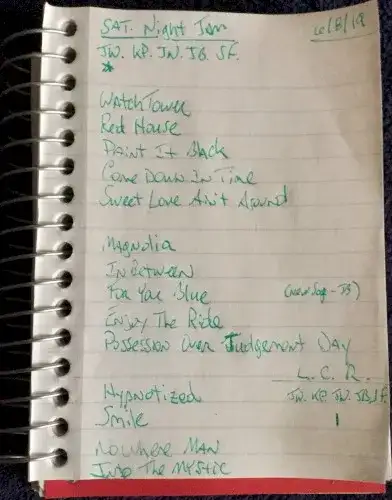 SAT. Night Jam 6/8/19
JW. KP. JN. JB. SF.
*
WatchTower
Red House
Paint It Black
Come Down In Time
Sweet Love Ain't Around
Magnolia
In Between
For You Blue (new song - JB)
Enjoy The Ride
Possession Over Judgement Day
L. C. R.
Hypnotized JW. KP. JW. JB, SF.
Smile 1
Nowhere Man
Into The Mystic